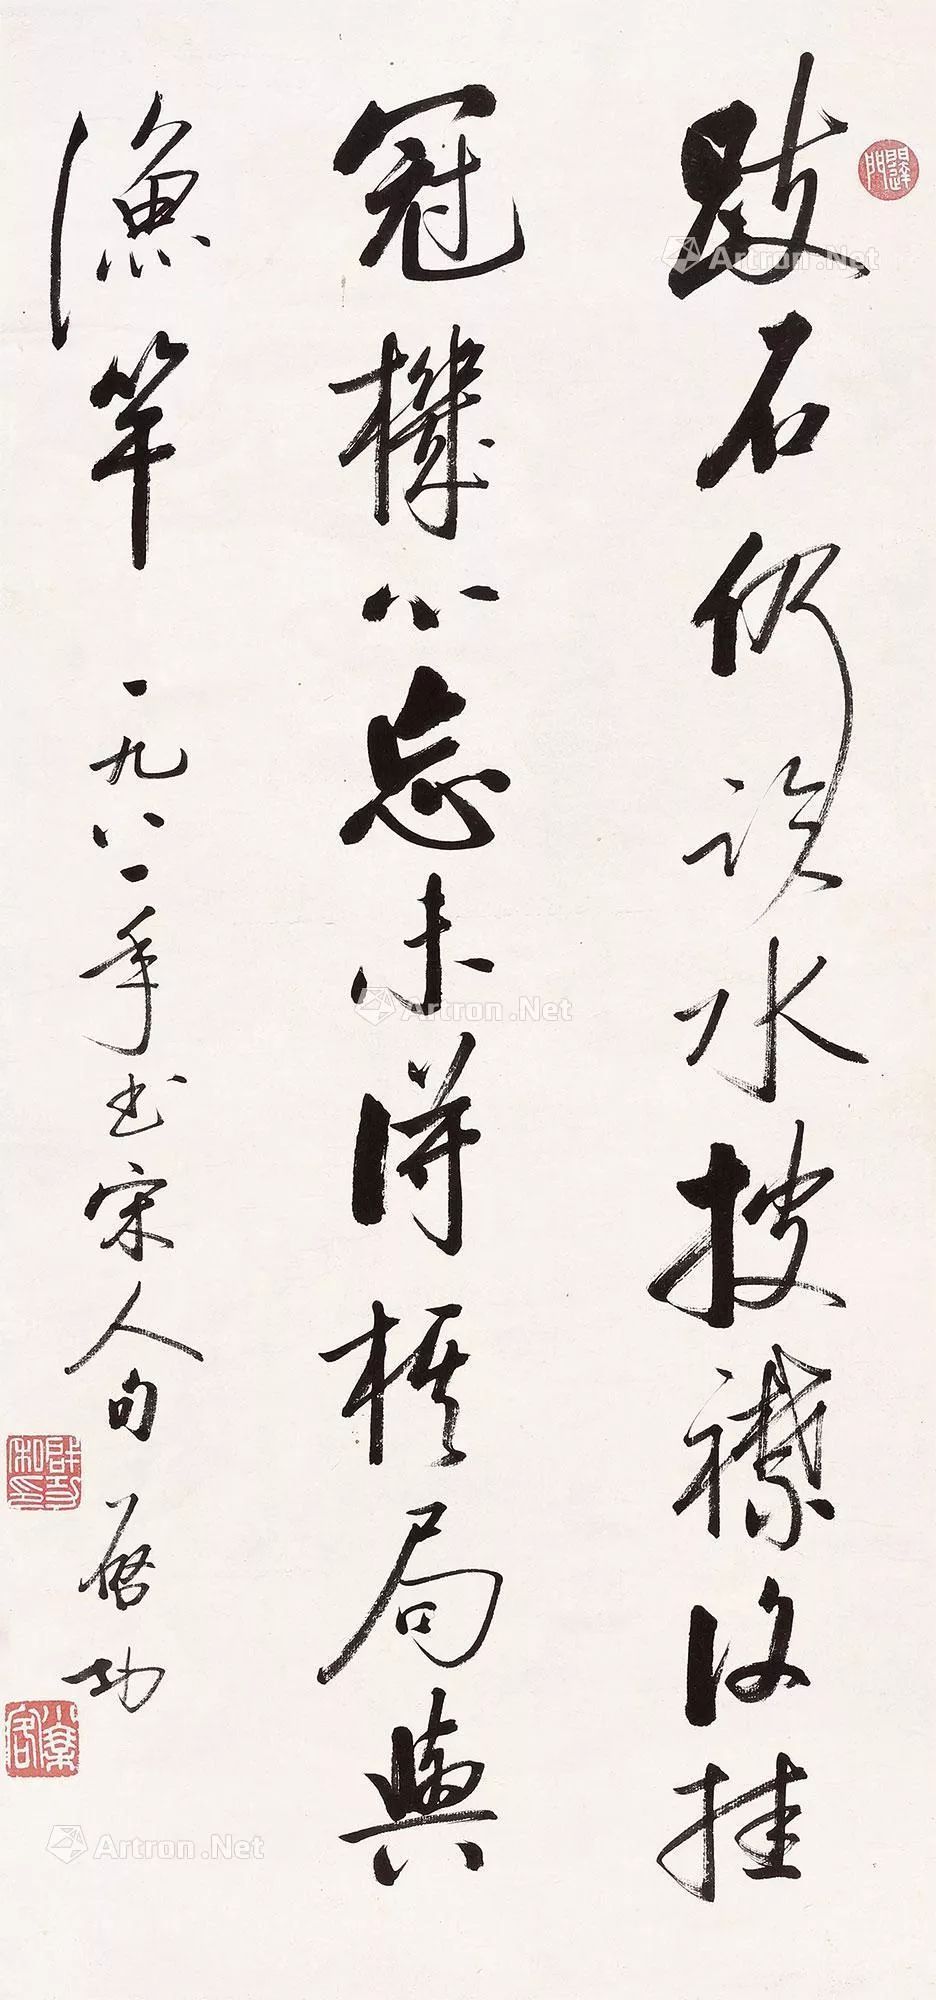 跂石仍臨水披襟復挂
冠機心忘未得棋局與
漁竿 一九八一年書宋人句 啓功
啓功私印
Artron.Net
Artron.Net
Artron.Net